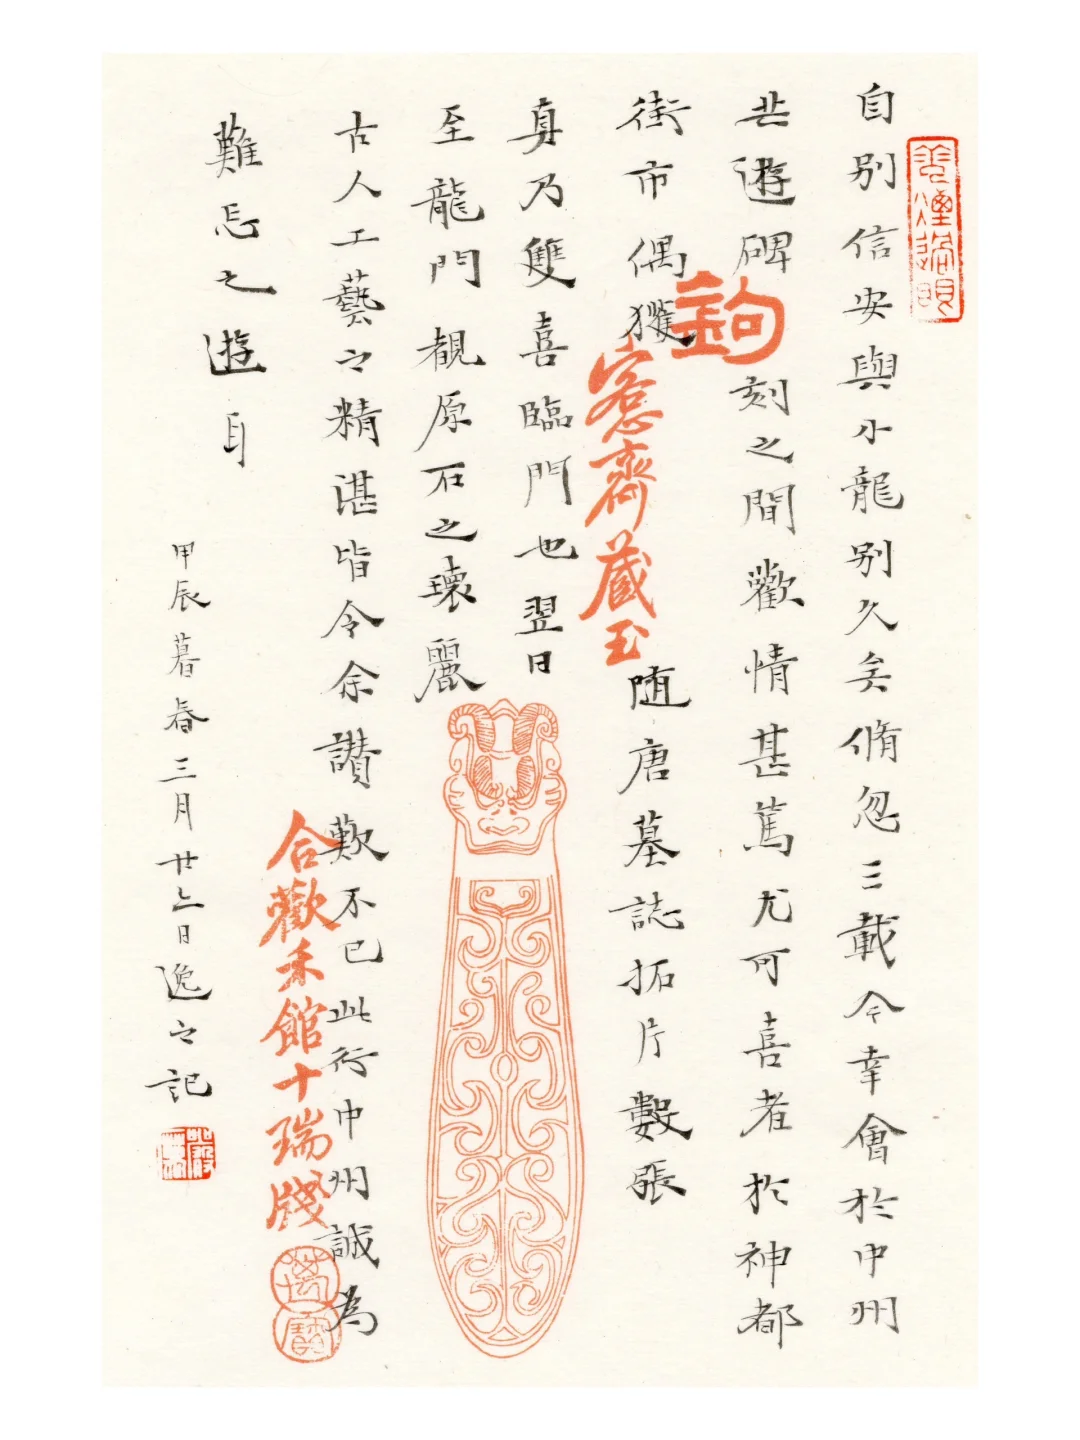 自别信安與小龍别久矣倏忽三載今幸會於中州
共遊碑刻之間歡情甚篤尤可喜者於神都
街市偶獲随唐墓誌拓片數張
真乃雙喜臨門也翌日
至龍門觀原石之瓌麗
古人工藝之精湛皆令余讚歎不已此行中州誠為
難忘之遊
甲辰暮春三月廿六日逸之記
鉤
愙齋藏玉
合歡禾館十瑞牋